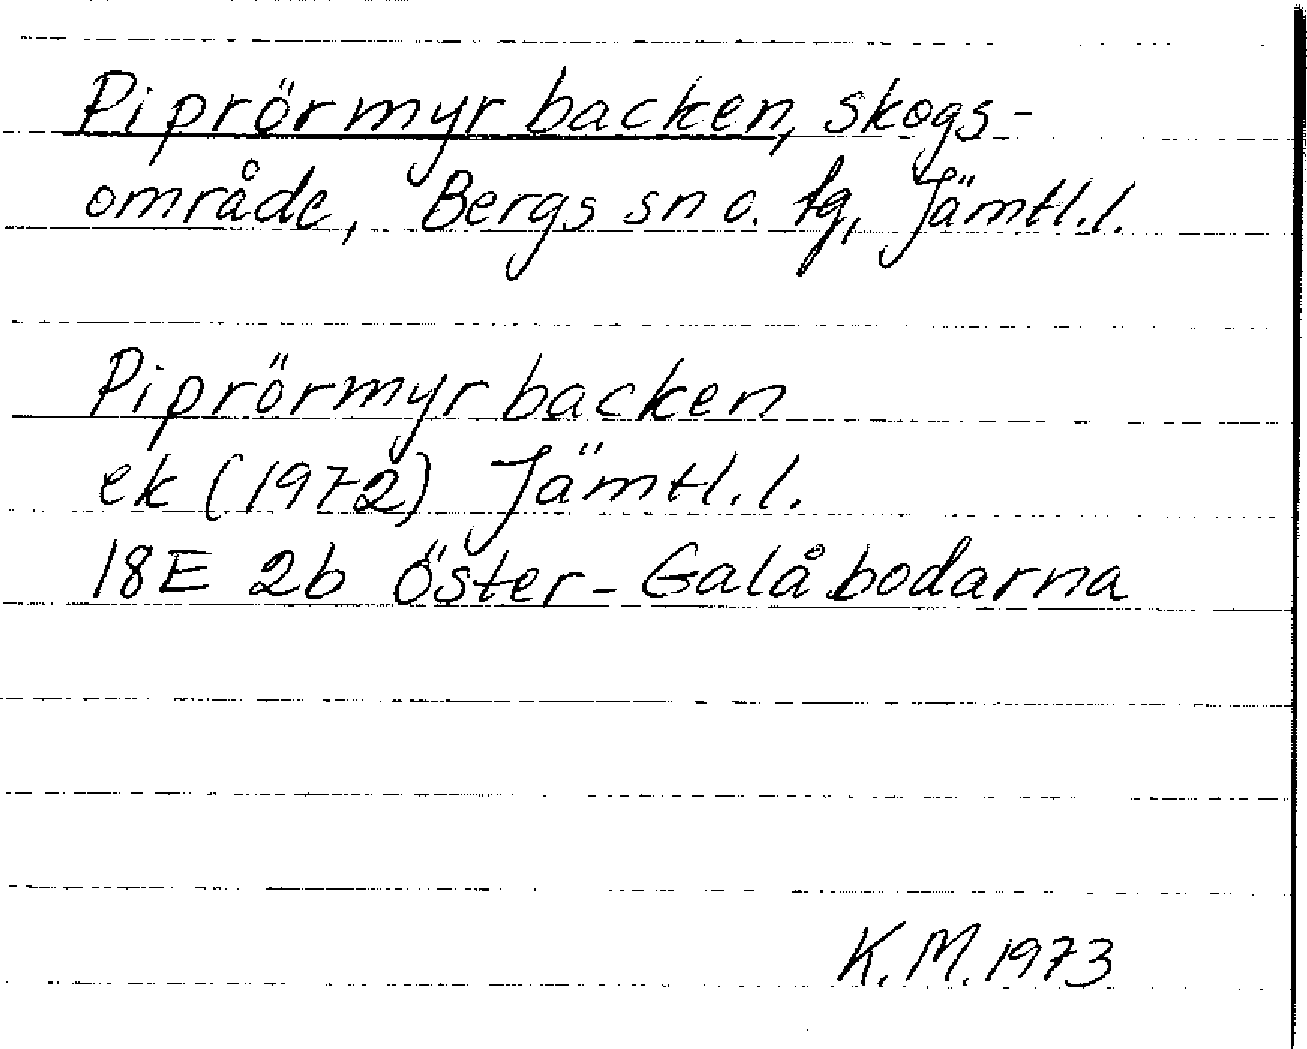 Piprörmyrbacken, skogs-
område, Bergs sn o. tg, Jämtl.l.
Piprörmyrbacken
ek (1972) Jämtl.l.
18E 2b Öster-Galåbodarna
K.M.1973